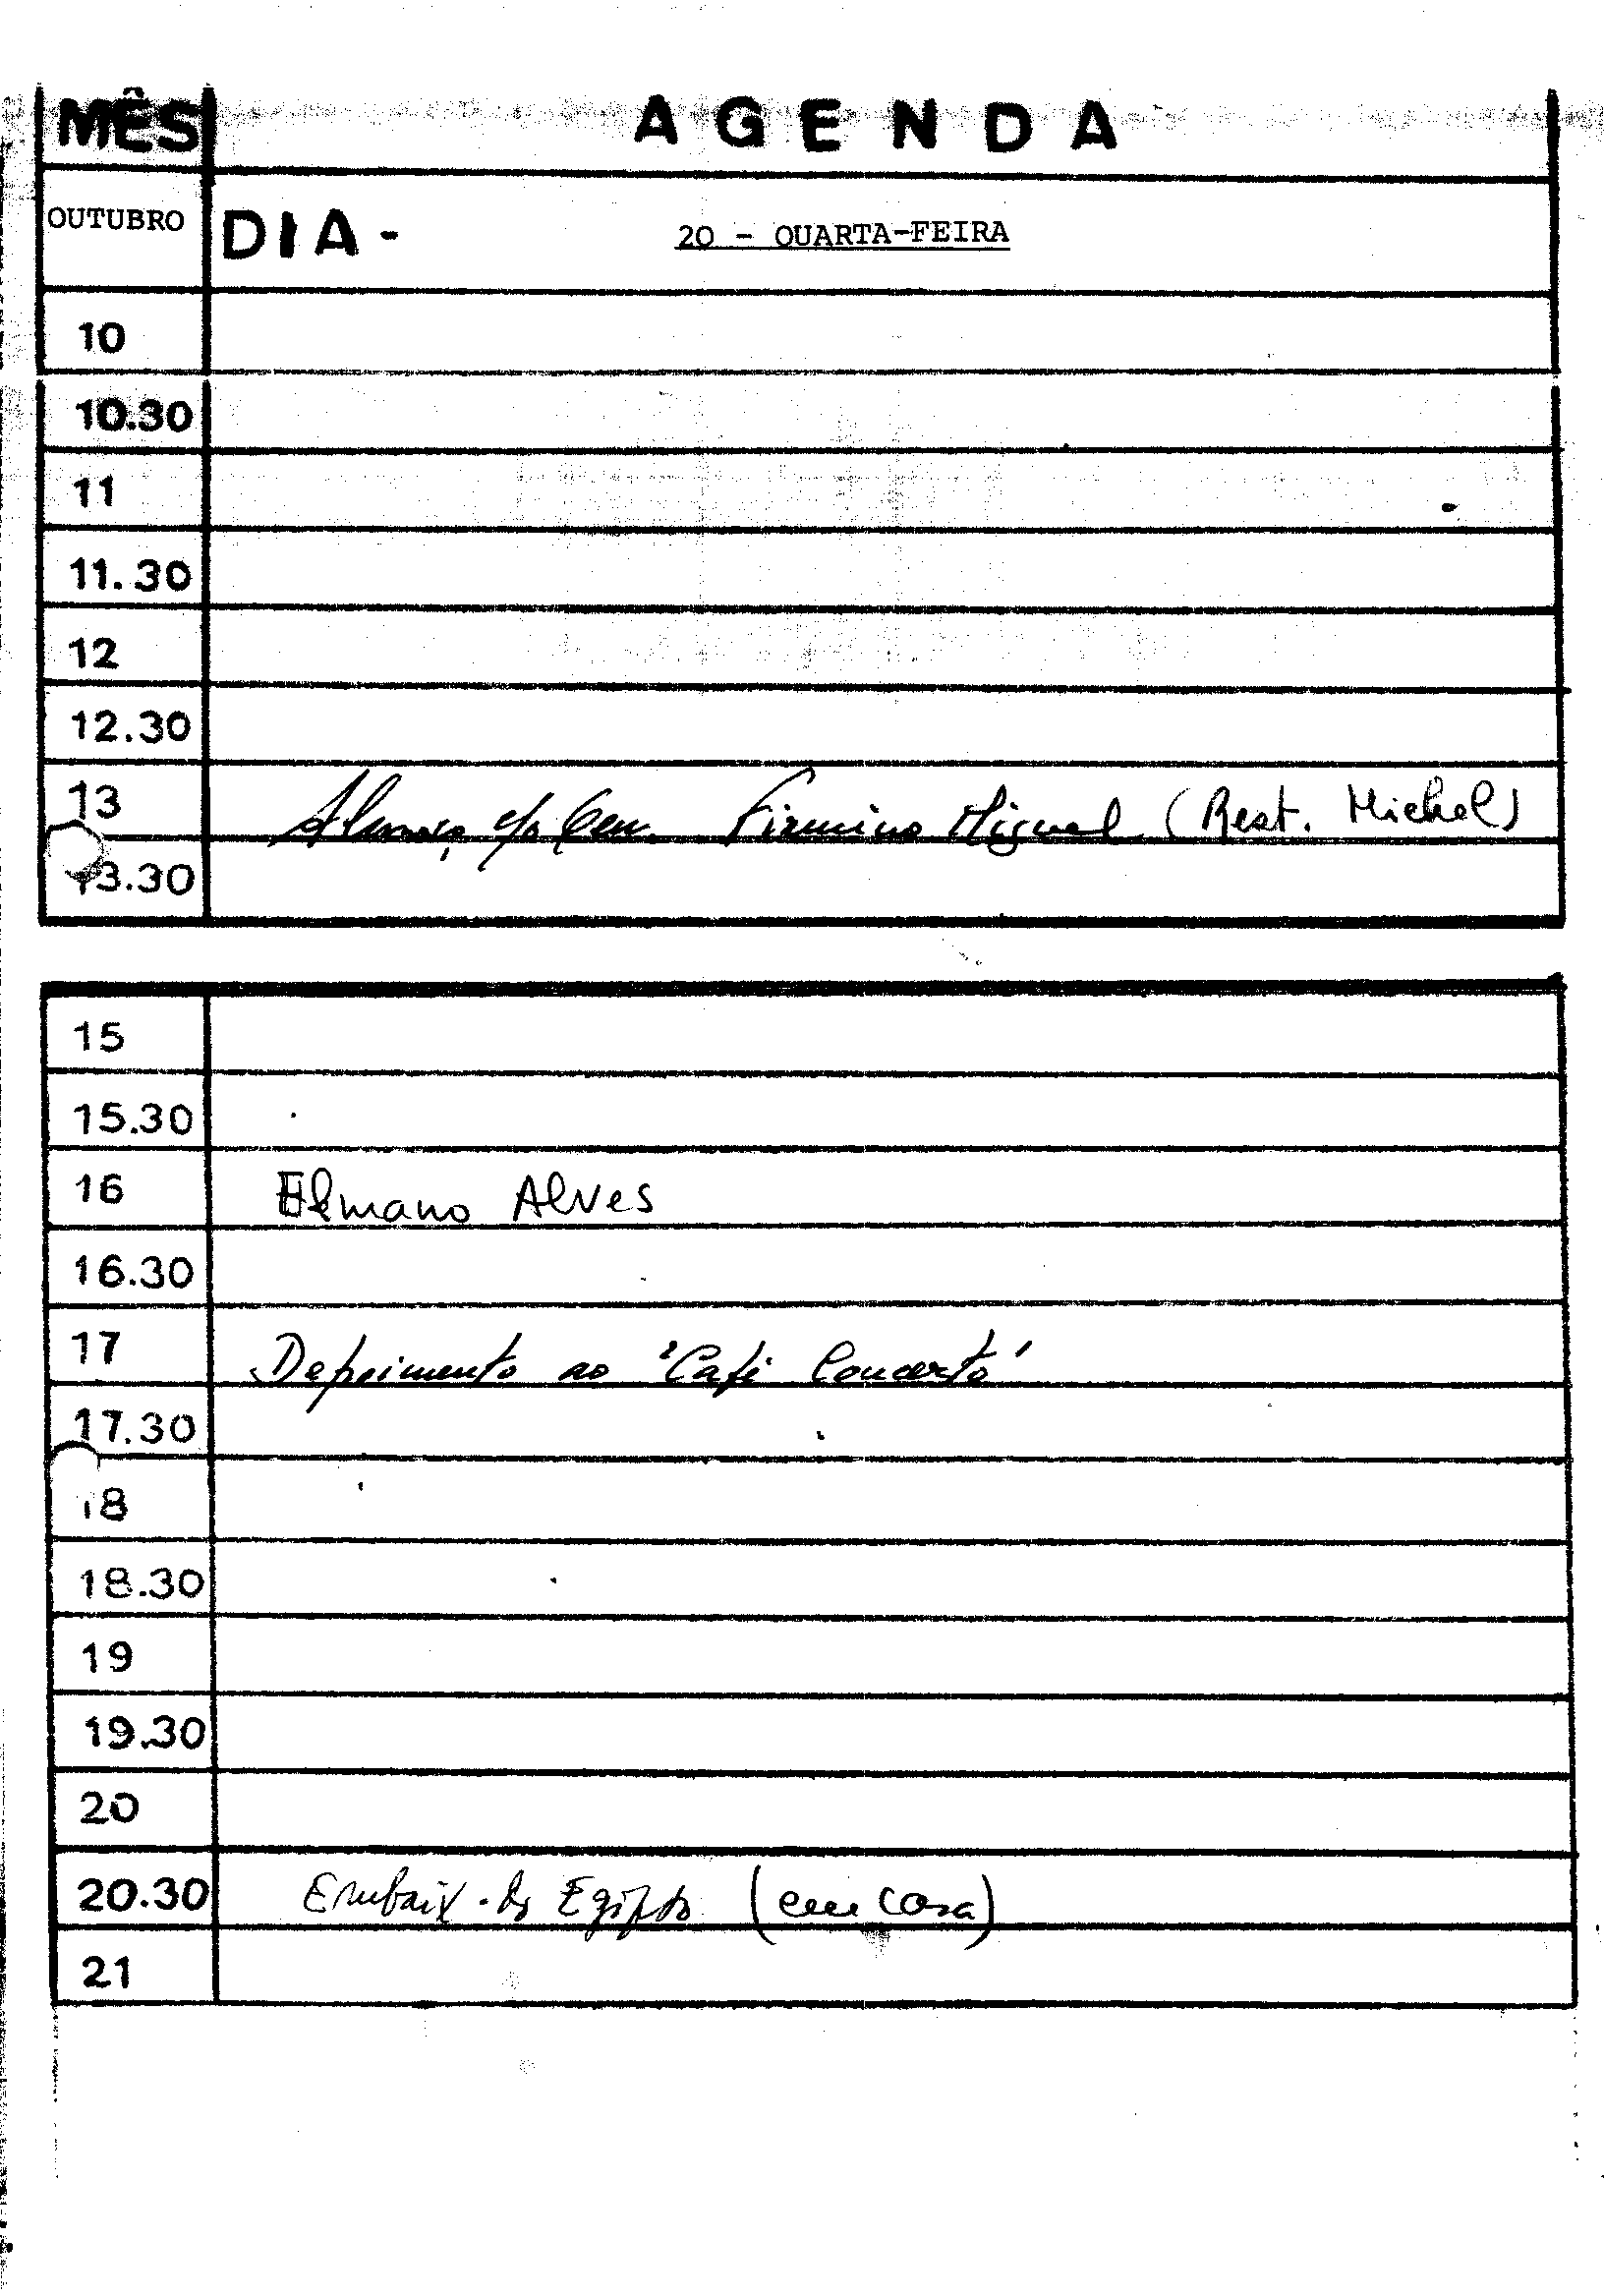 MÊS AGENDA
OUTUBRO DIA - 20 - QUARTA-FEIRA
10
10.30
11
11.30
12
12.30
13 Almoço c/o Gen. Firmino Miguel (Rest. Michel)
13.30
15
15.30
16 Elmano Alves
16.30
17 Depoimento ao 'Café Concerto'
17.30
18
18.30
19
19.30
20
20.30 Embaix. do Egipto (em casa)
21